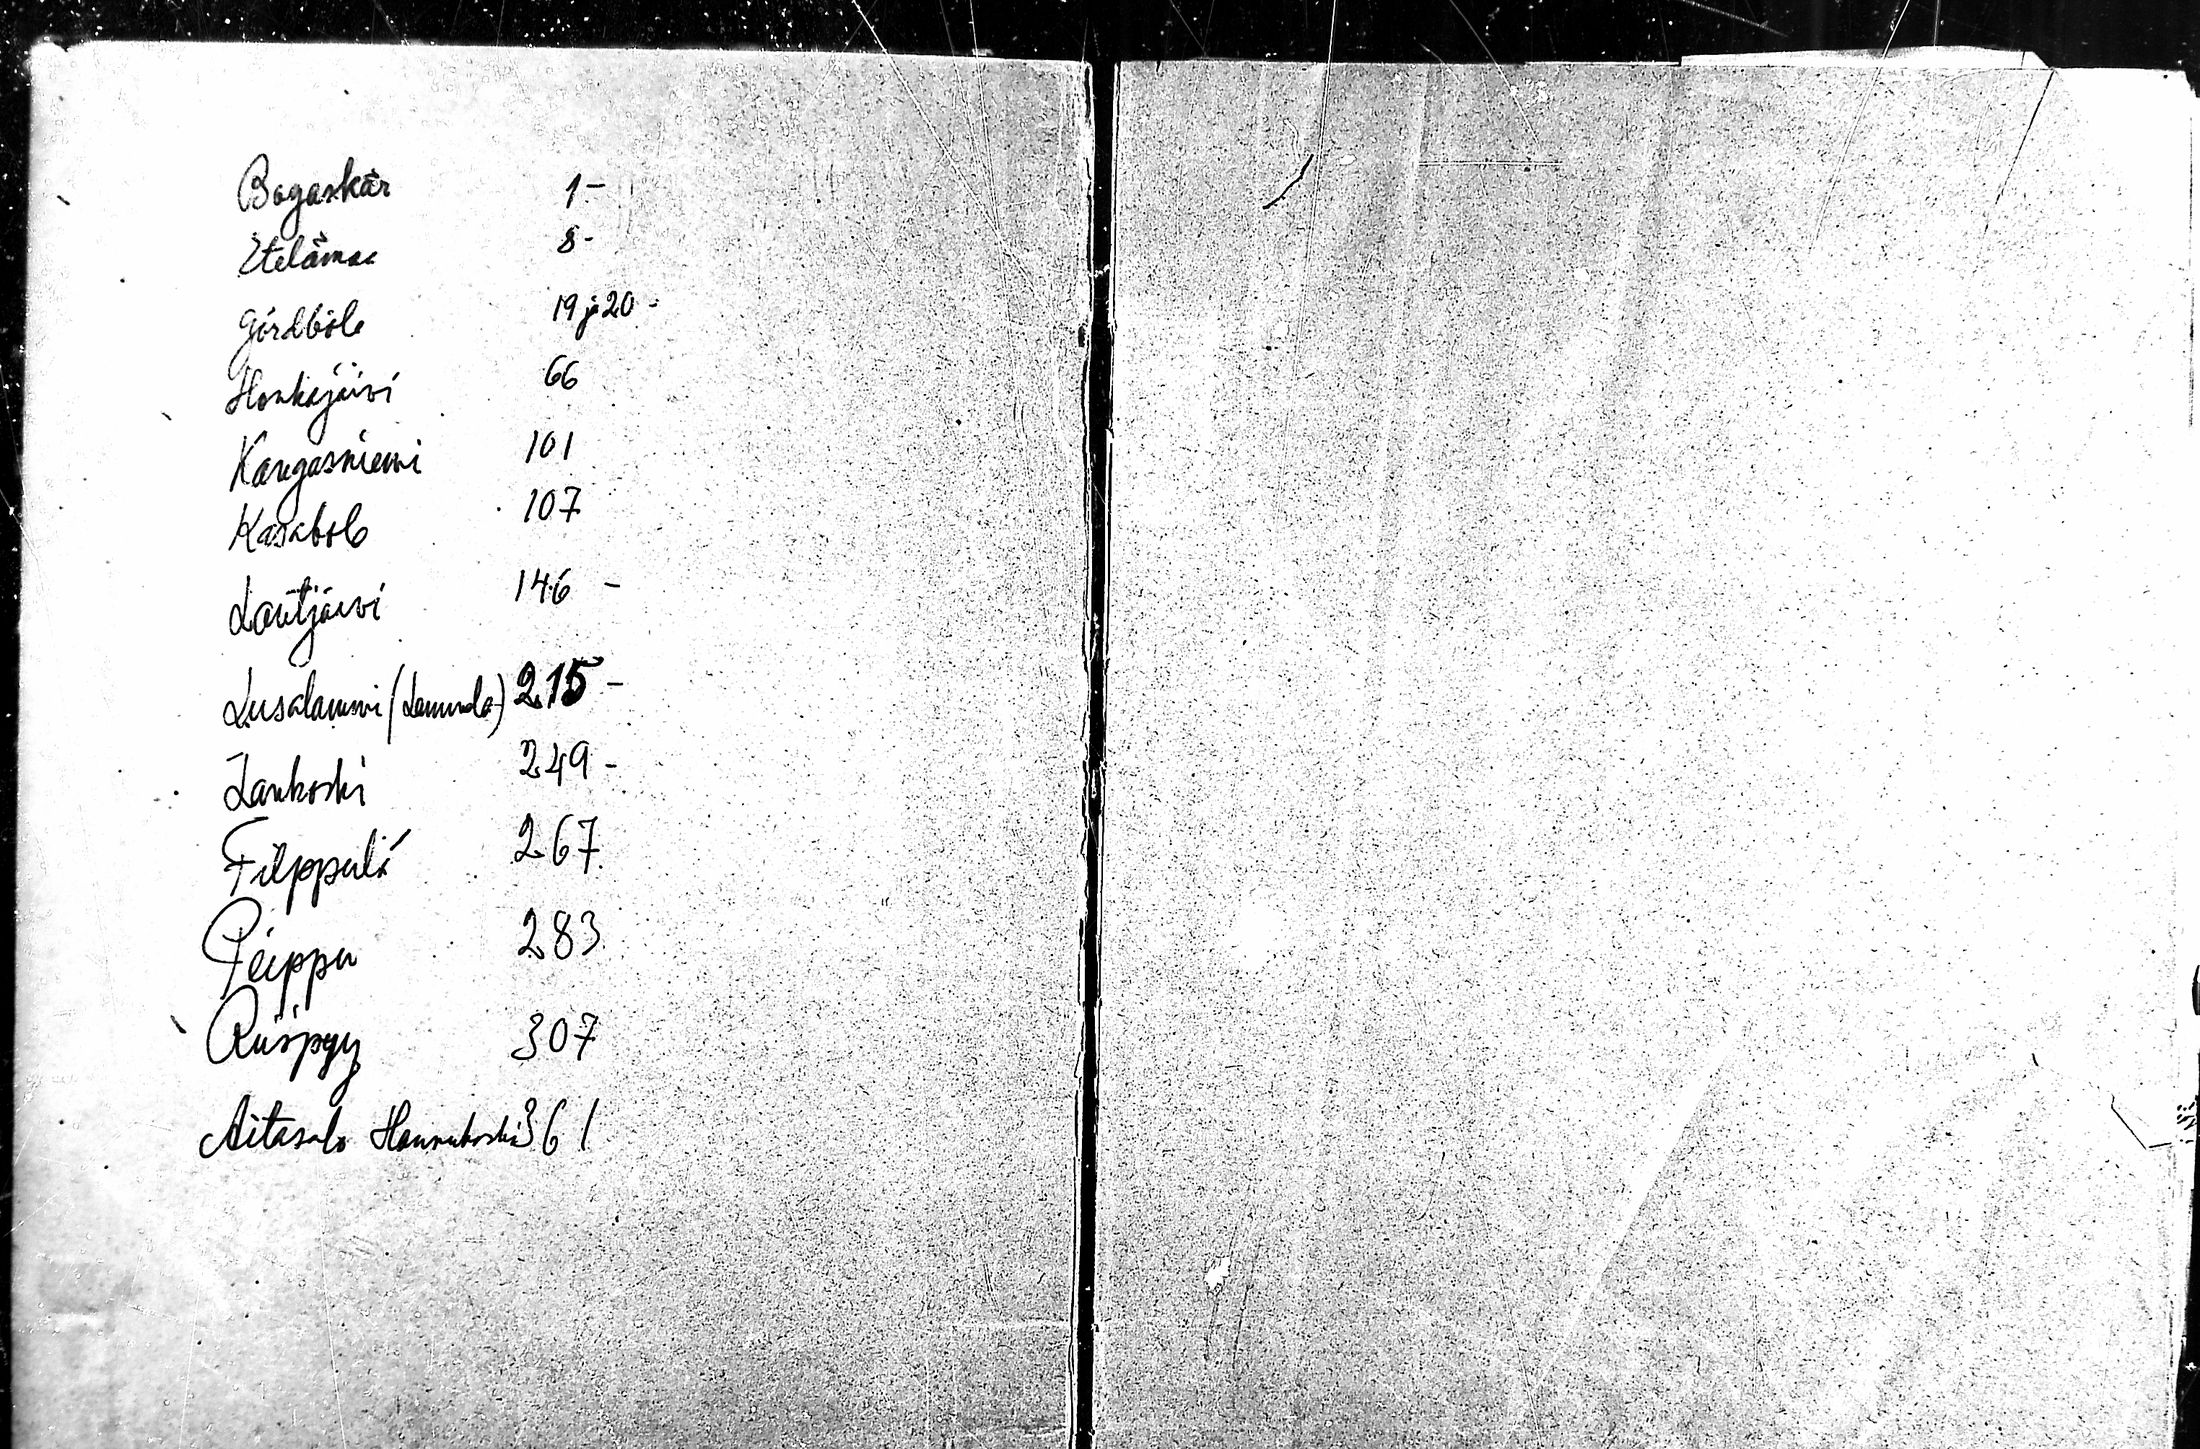 Bogaskär 1-
Etelämaa 8-
Gårdböle 19 ja 20 -
Honkajärvi 66
Kangasniemi 101
Kasaböle 107
Lautjärvi 146 -
Lusalammi (Lammela) 215 -
Lankoski 249 -
Filppulä 267
Peippu 283
Riispyy 307
Aitasalo Hannukoski 361